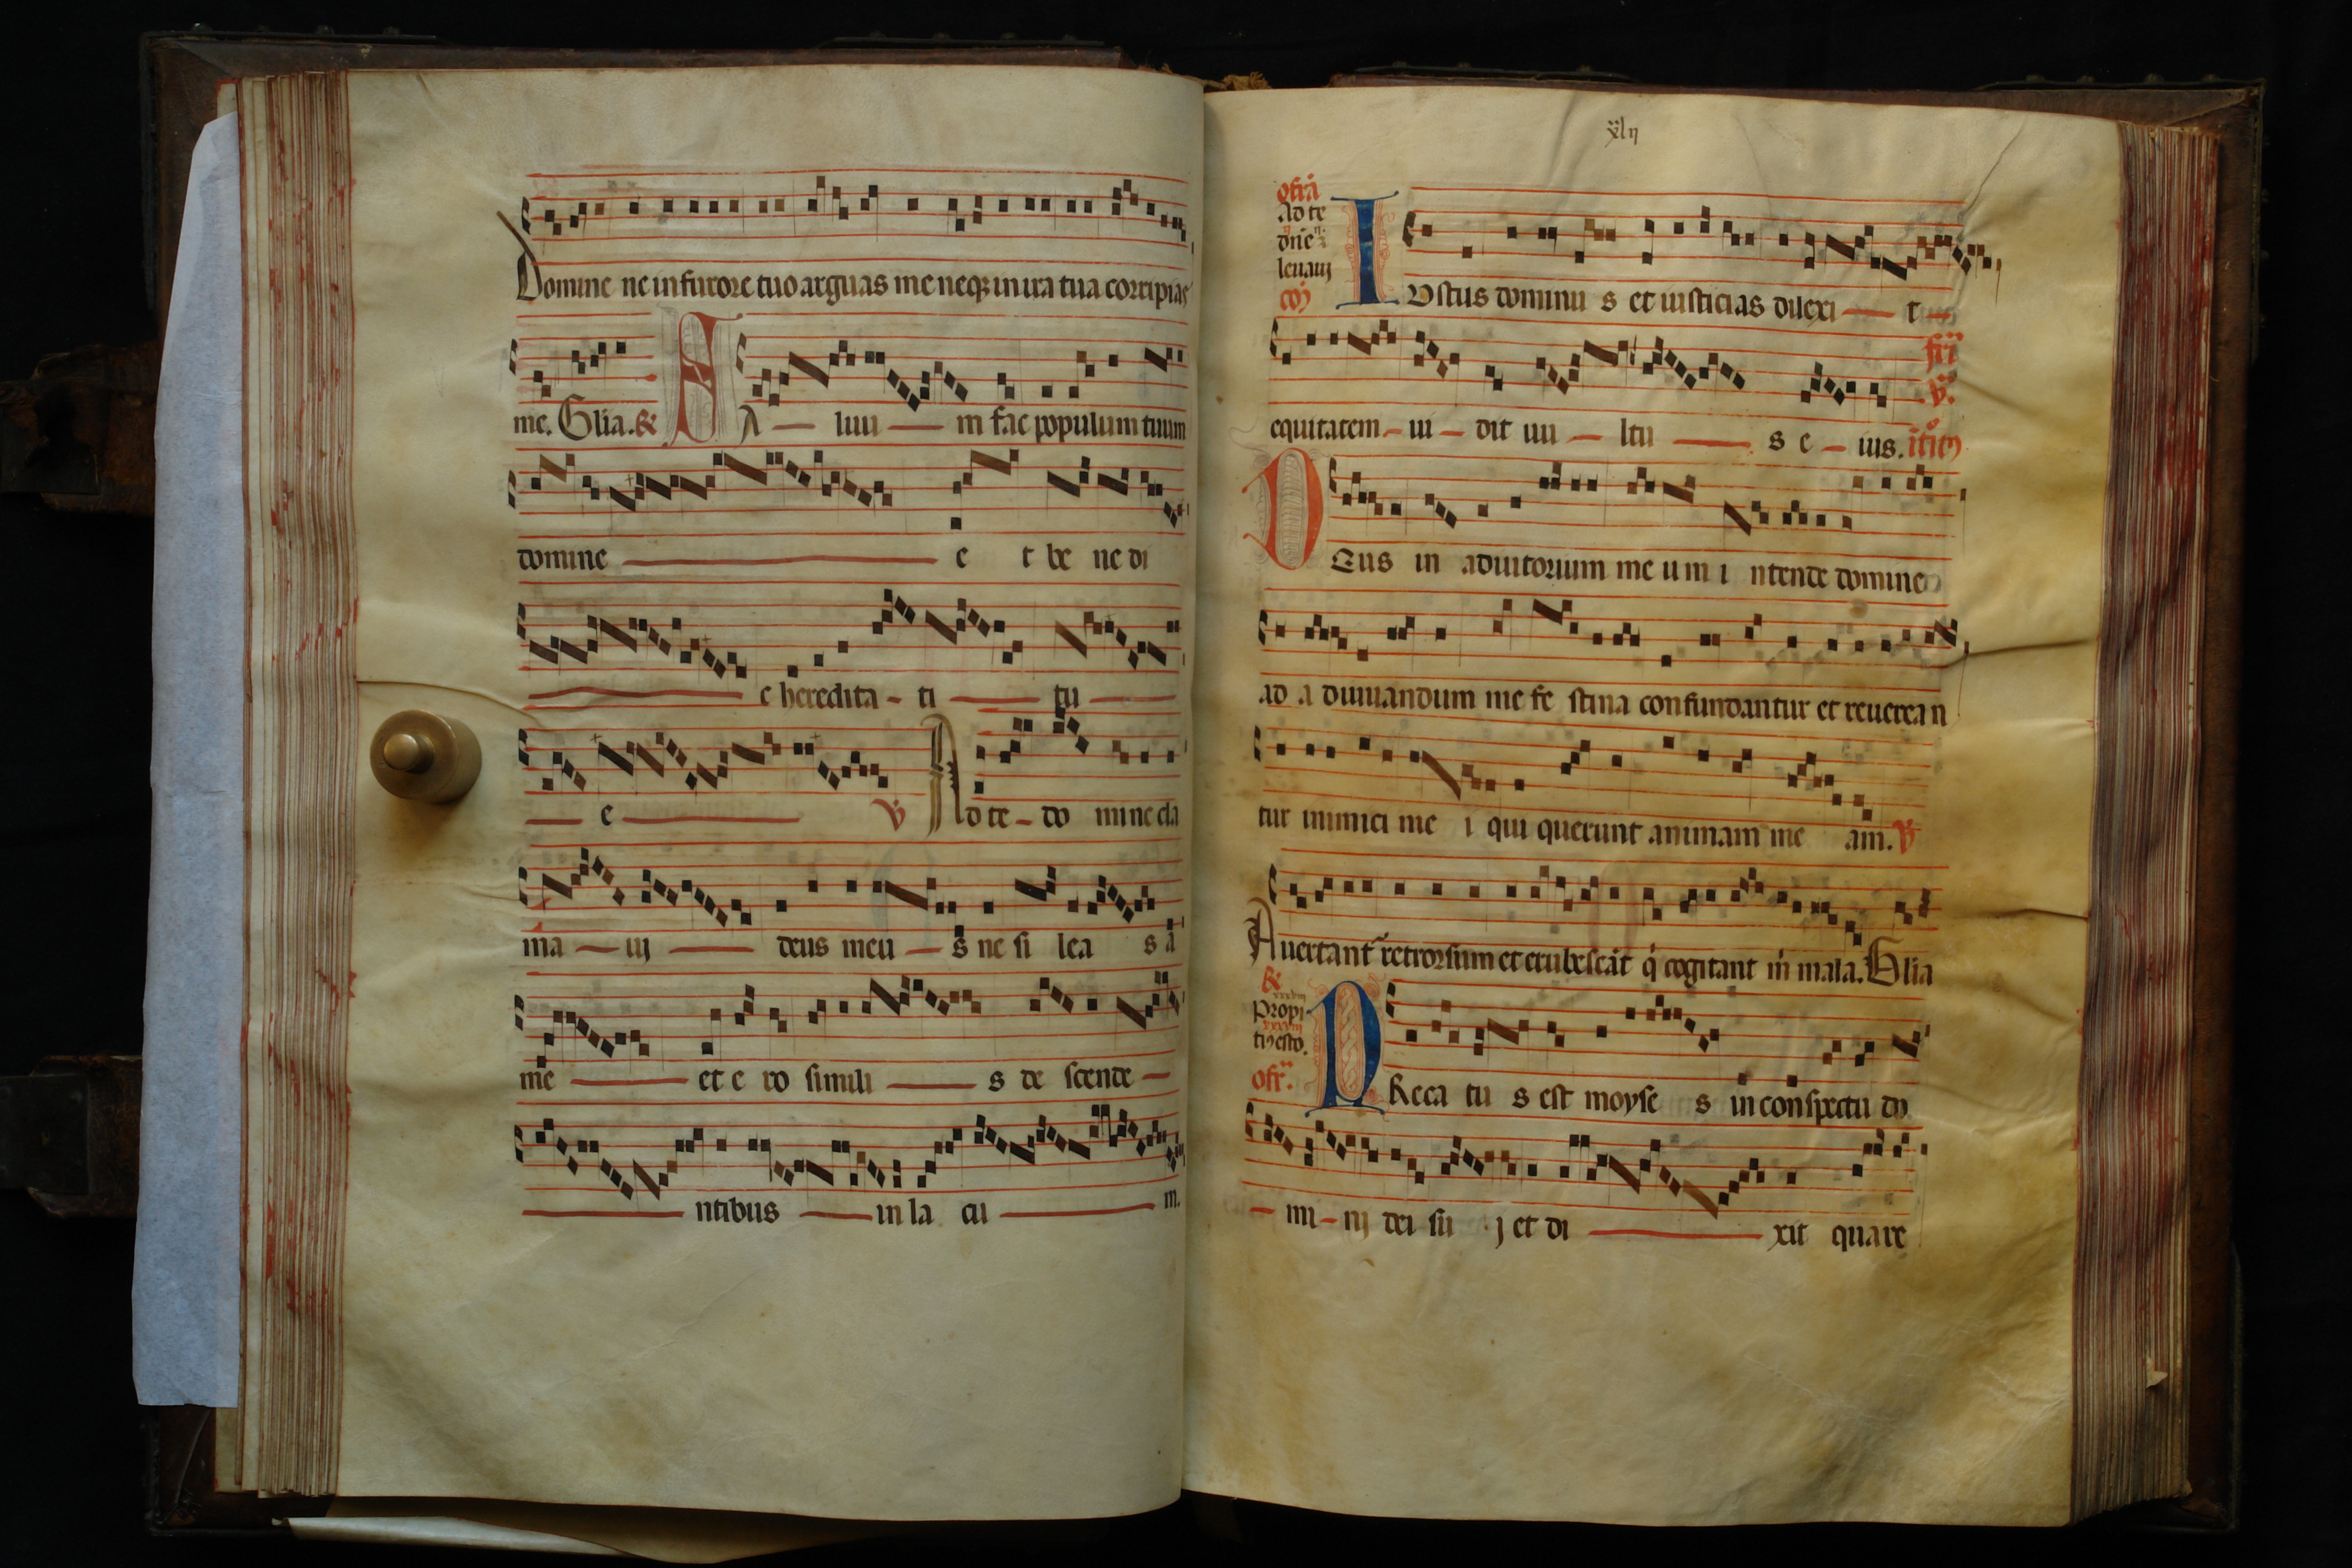 Domine ne in furore tuo arguas me neqꝫ in ira tua corripias
me. Glia. ꝶ SA luu m fac populum tuum
domine e t be ne di
c heredita - ti tu
e ℣ Ad te - do mine cla
ma ui deus meu s ne si lea s a
me et e ro simili s de scende
ntibus in la cu m.
xlij
offrā
Ad te
dn̄e
leuaui
coꝫ
IVstus dominu s et iusticias dilexi t
equitatem - ui - dit uu - ltu s e - ius.
DEus in adiutorium me u m i ntende domine
ad a diuuandum me fe stina confundantur et reuerea n
tur inimici me i qui querunt animam me am. ℣
Auertant͛ retrorsum et erubescāt q̇ cogitant m̄ mala. Glia
ꝶ
Propi
tiꝰ esto.
ofr̄.
PReca tu s est moyse s in conspectu do
mi - nj dei su j et di xit quare